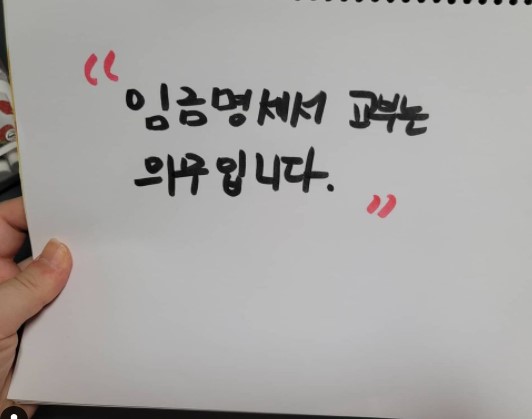 “임금명세서 교부는
의무입니다.”